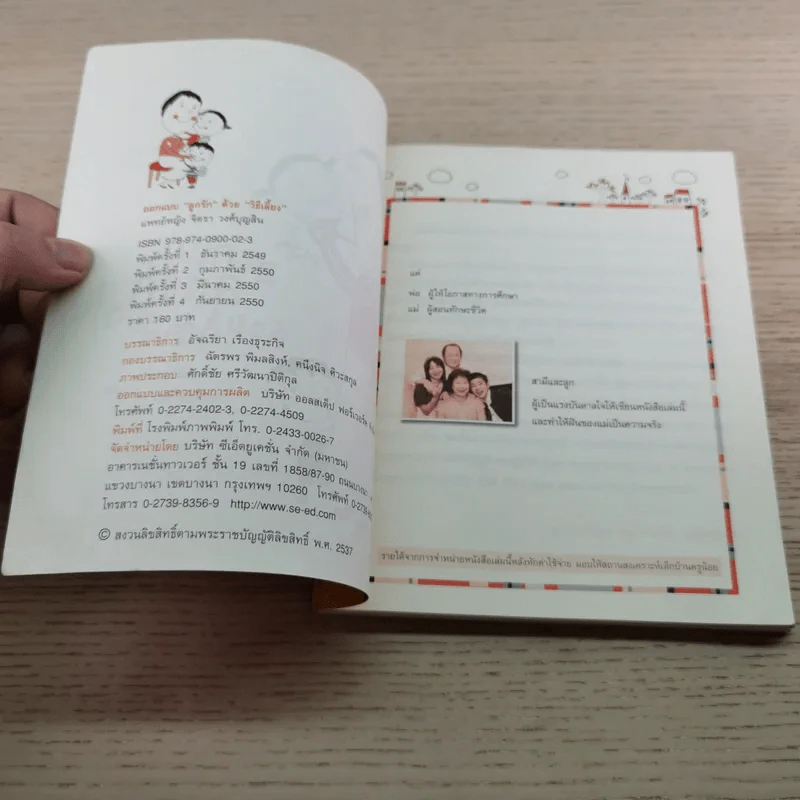 ออกแบบ "ลูกรัก" ด้วย "วิธีเลี้ยง"
แพทย์หญิง จิตรา วงศ์บุญสิน
ISBN 978-974-0900-02-3
พิมพ์ครั้งที่ 1 ธันวาคม 2549
พิมพ์ครั้งที่ 2 กุมภาพันธ์ 2550
พิมพ์ครั้งที่ 3 มีนาคม 2550
พิมพ์ครั้งที่ 4 กันยายน 2550
ราคา 180 บาท
บรรณาธิการ อัจฉริยา เรืองธุระกิจ
กองบรรณาธิการ ฉัตรพร พิมลสิงห์, คนึงนิจ ศิวะสกุล
ภาพประกอบ ศักดิ์ชัย ศรีวัฒนาปิติกุล
ออกแบบและควบคุมการผลิต บริษัท ออลสเต็ป ฟอร์เวอร์ด
โทรศัพท์ 0-2274-2402-3, 0-2274-4509
พิมพ์ที่ โรงพิมพ์ภาพพิมพ์ โทร. 0-2433-0026-7
จัดจำหน่ายโดย บริษัท ซีเอ็ดยูเคชั่น จำกัด (มหาชน)
อาคารเนชั่นทาวเวอร์ ชั้น 19 เลขที่ 1858/87-90
แขวงบางนา เขตบางนา กรุงเทพฯ 10260 โทรศัพท์
โทรสาร 0-2739-8356-9 http://www.se-ed.com
© สงวนลิขสิทธิ์ตามพระราชบัญญัติลิขสิทธิ์ พ.ศ. 2537
แด่
พ่อ ผู้ให้โอกาสทางการศึกษา
แม่ ผู้สอนทักษะชีวิต
สามีและลูก
ผู้เป็นแรงบันดาลใจให้เขียนหนังสือเล่มนี้
และทำให้ฝันของแม่เป็นความจริง
รายได้จากการจำหน่ายหนังสือเล่มนี้หลังหักค่าใช้จ่าย มอบให้สถานสงเคราะห์เด็กบ้านครูน้อย